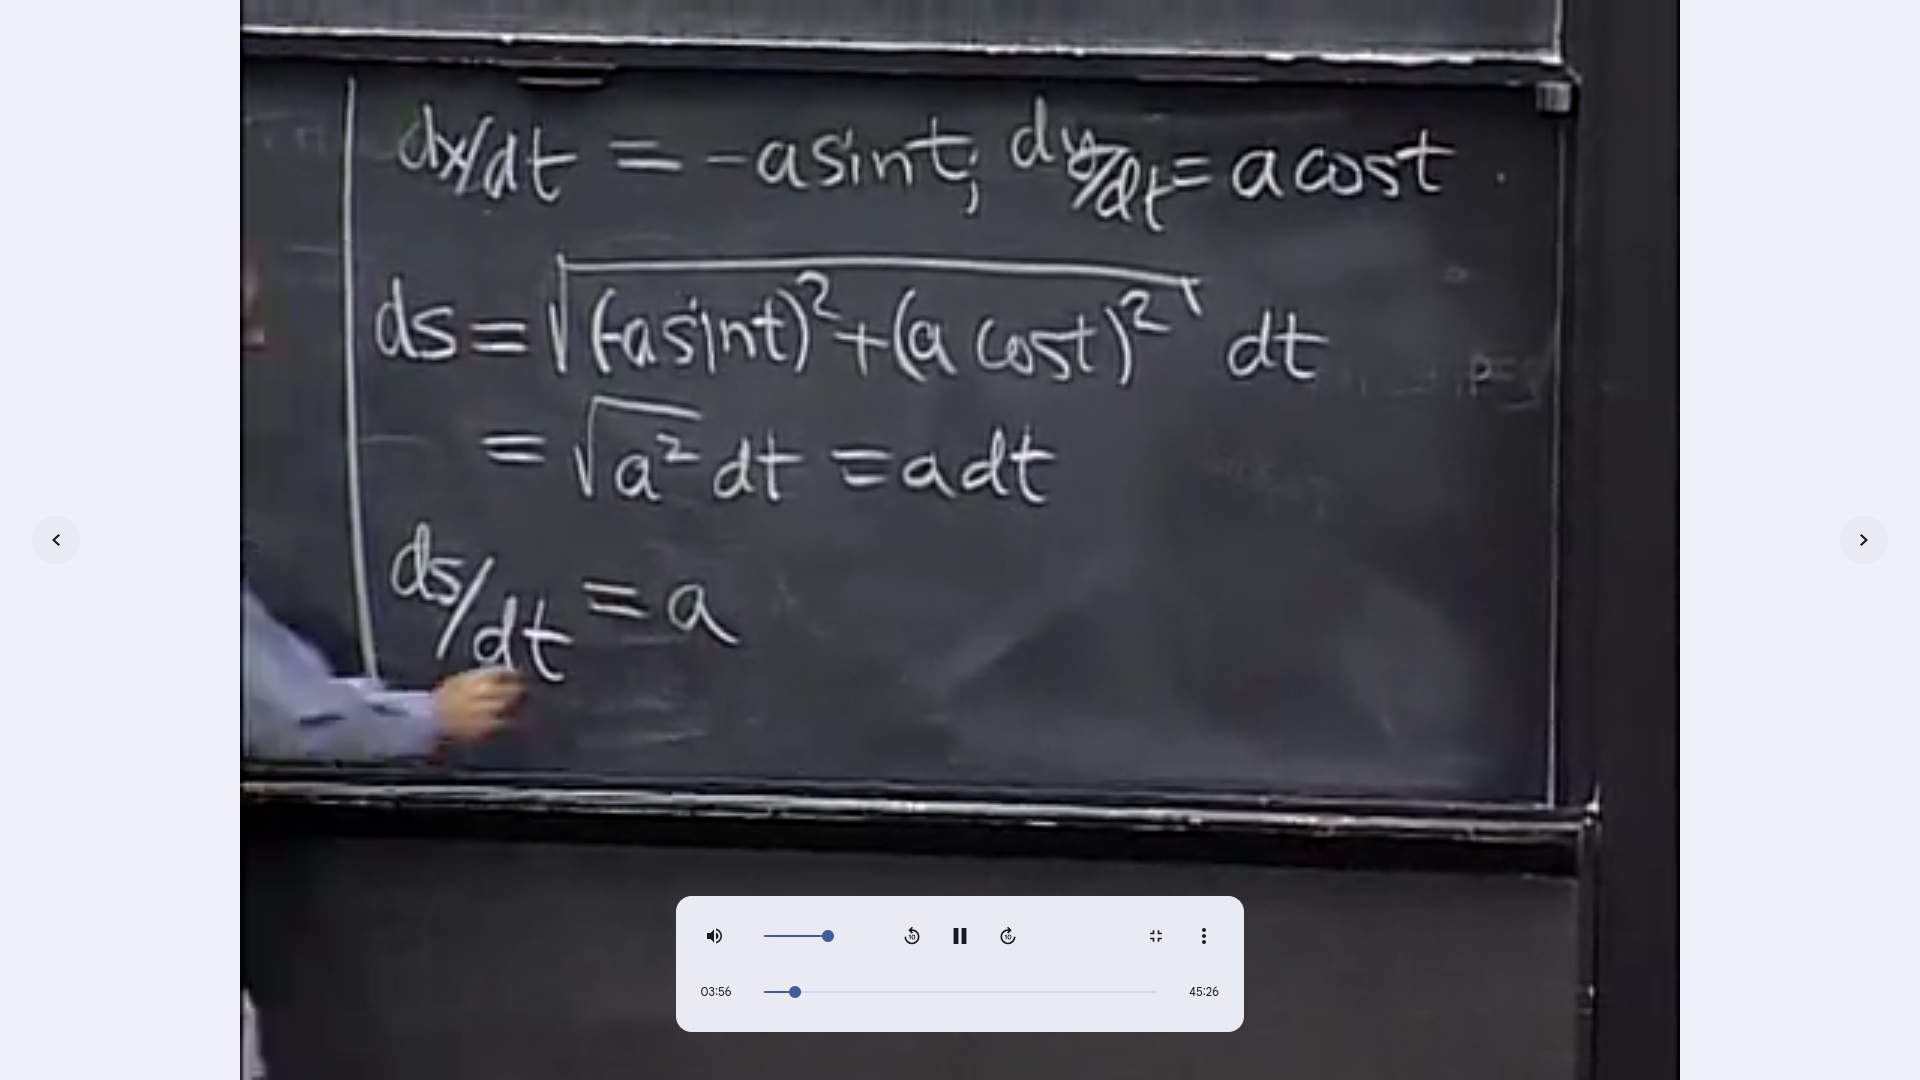 dx/dt = -a sin t; dy/dt = a cos t
ds = √(-a sin t)² + (a cos t)² dt
= √a² dt = a dt
ds/dt = a
10
10
03:56
45:26